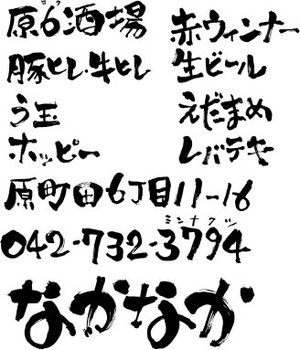 原ロク6酒場 赤ウィンナー
豚ヒレ・牛ヒレ 生ビール
う玉 えだまめ
ホッピー レバテキ
原町田6丁目11-16
ミンナクシ
042-732-3794
なかなか